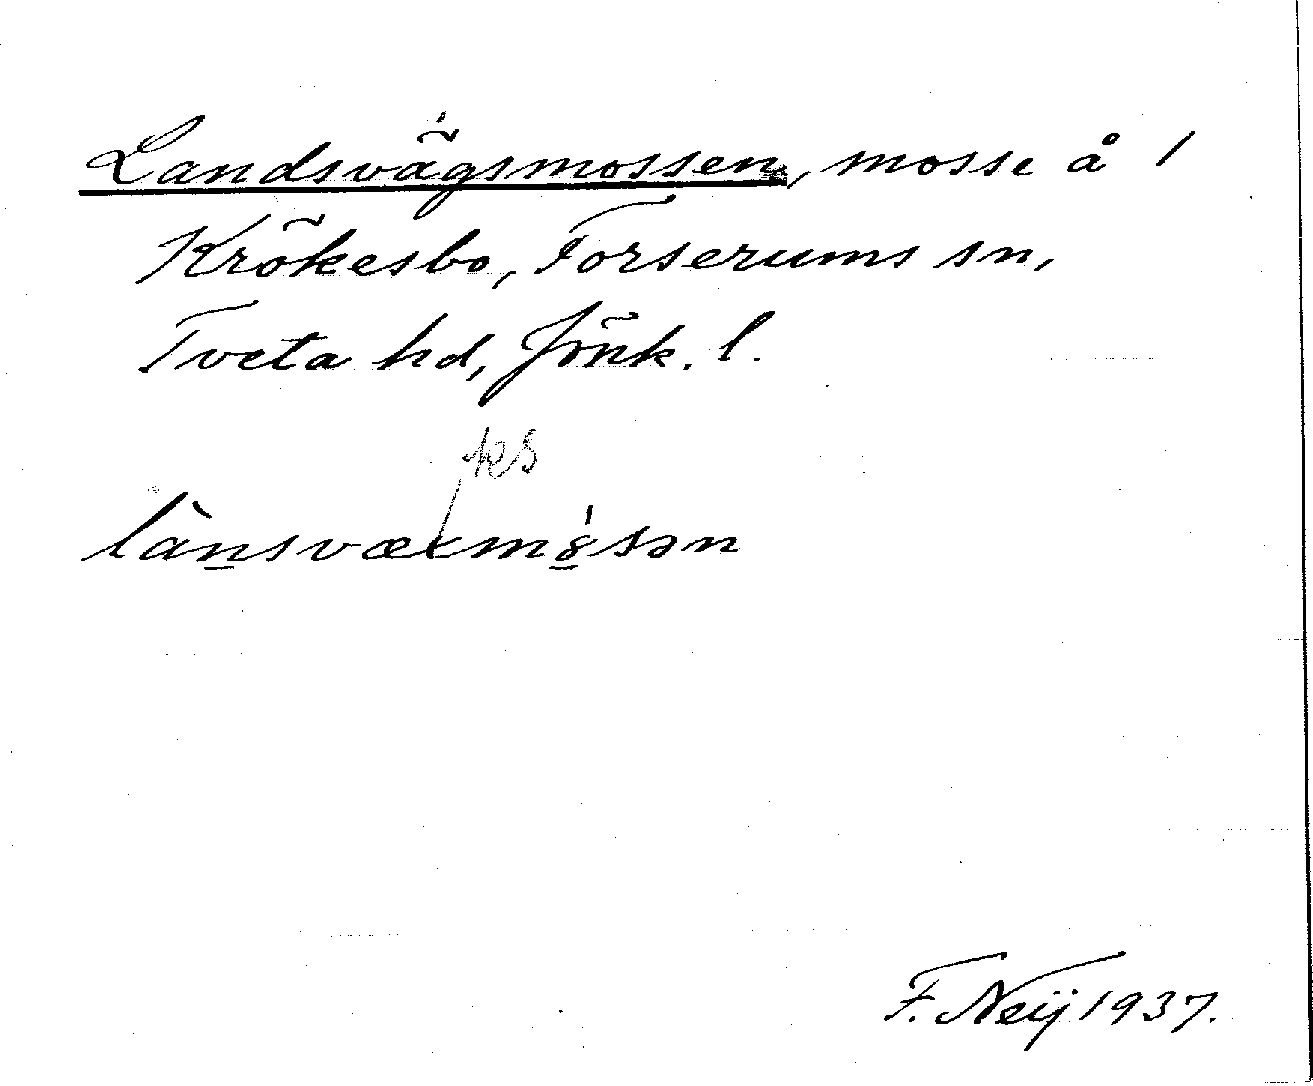 Landsvägsmossen, mosse å 1
Krökesbo, Forserums sn,
Tveta hd, Jönk. l.
ks
F. Neij 1937.